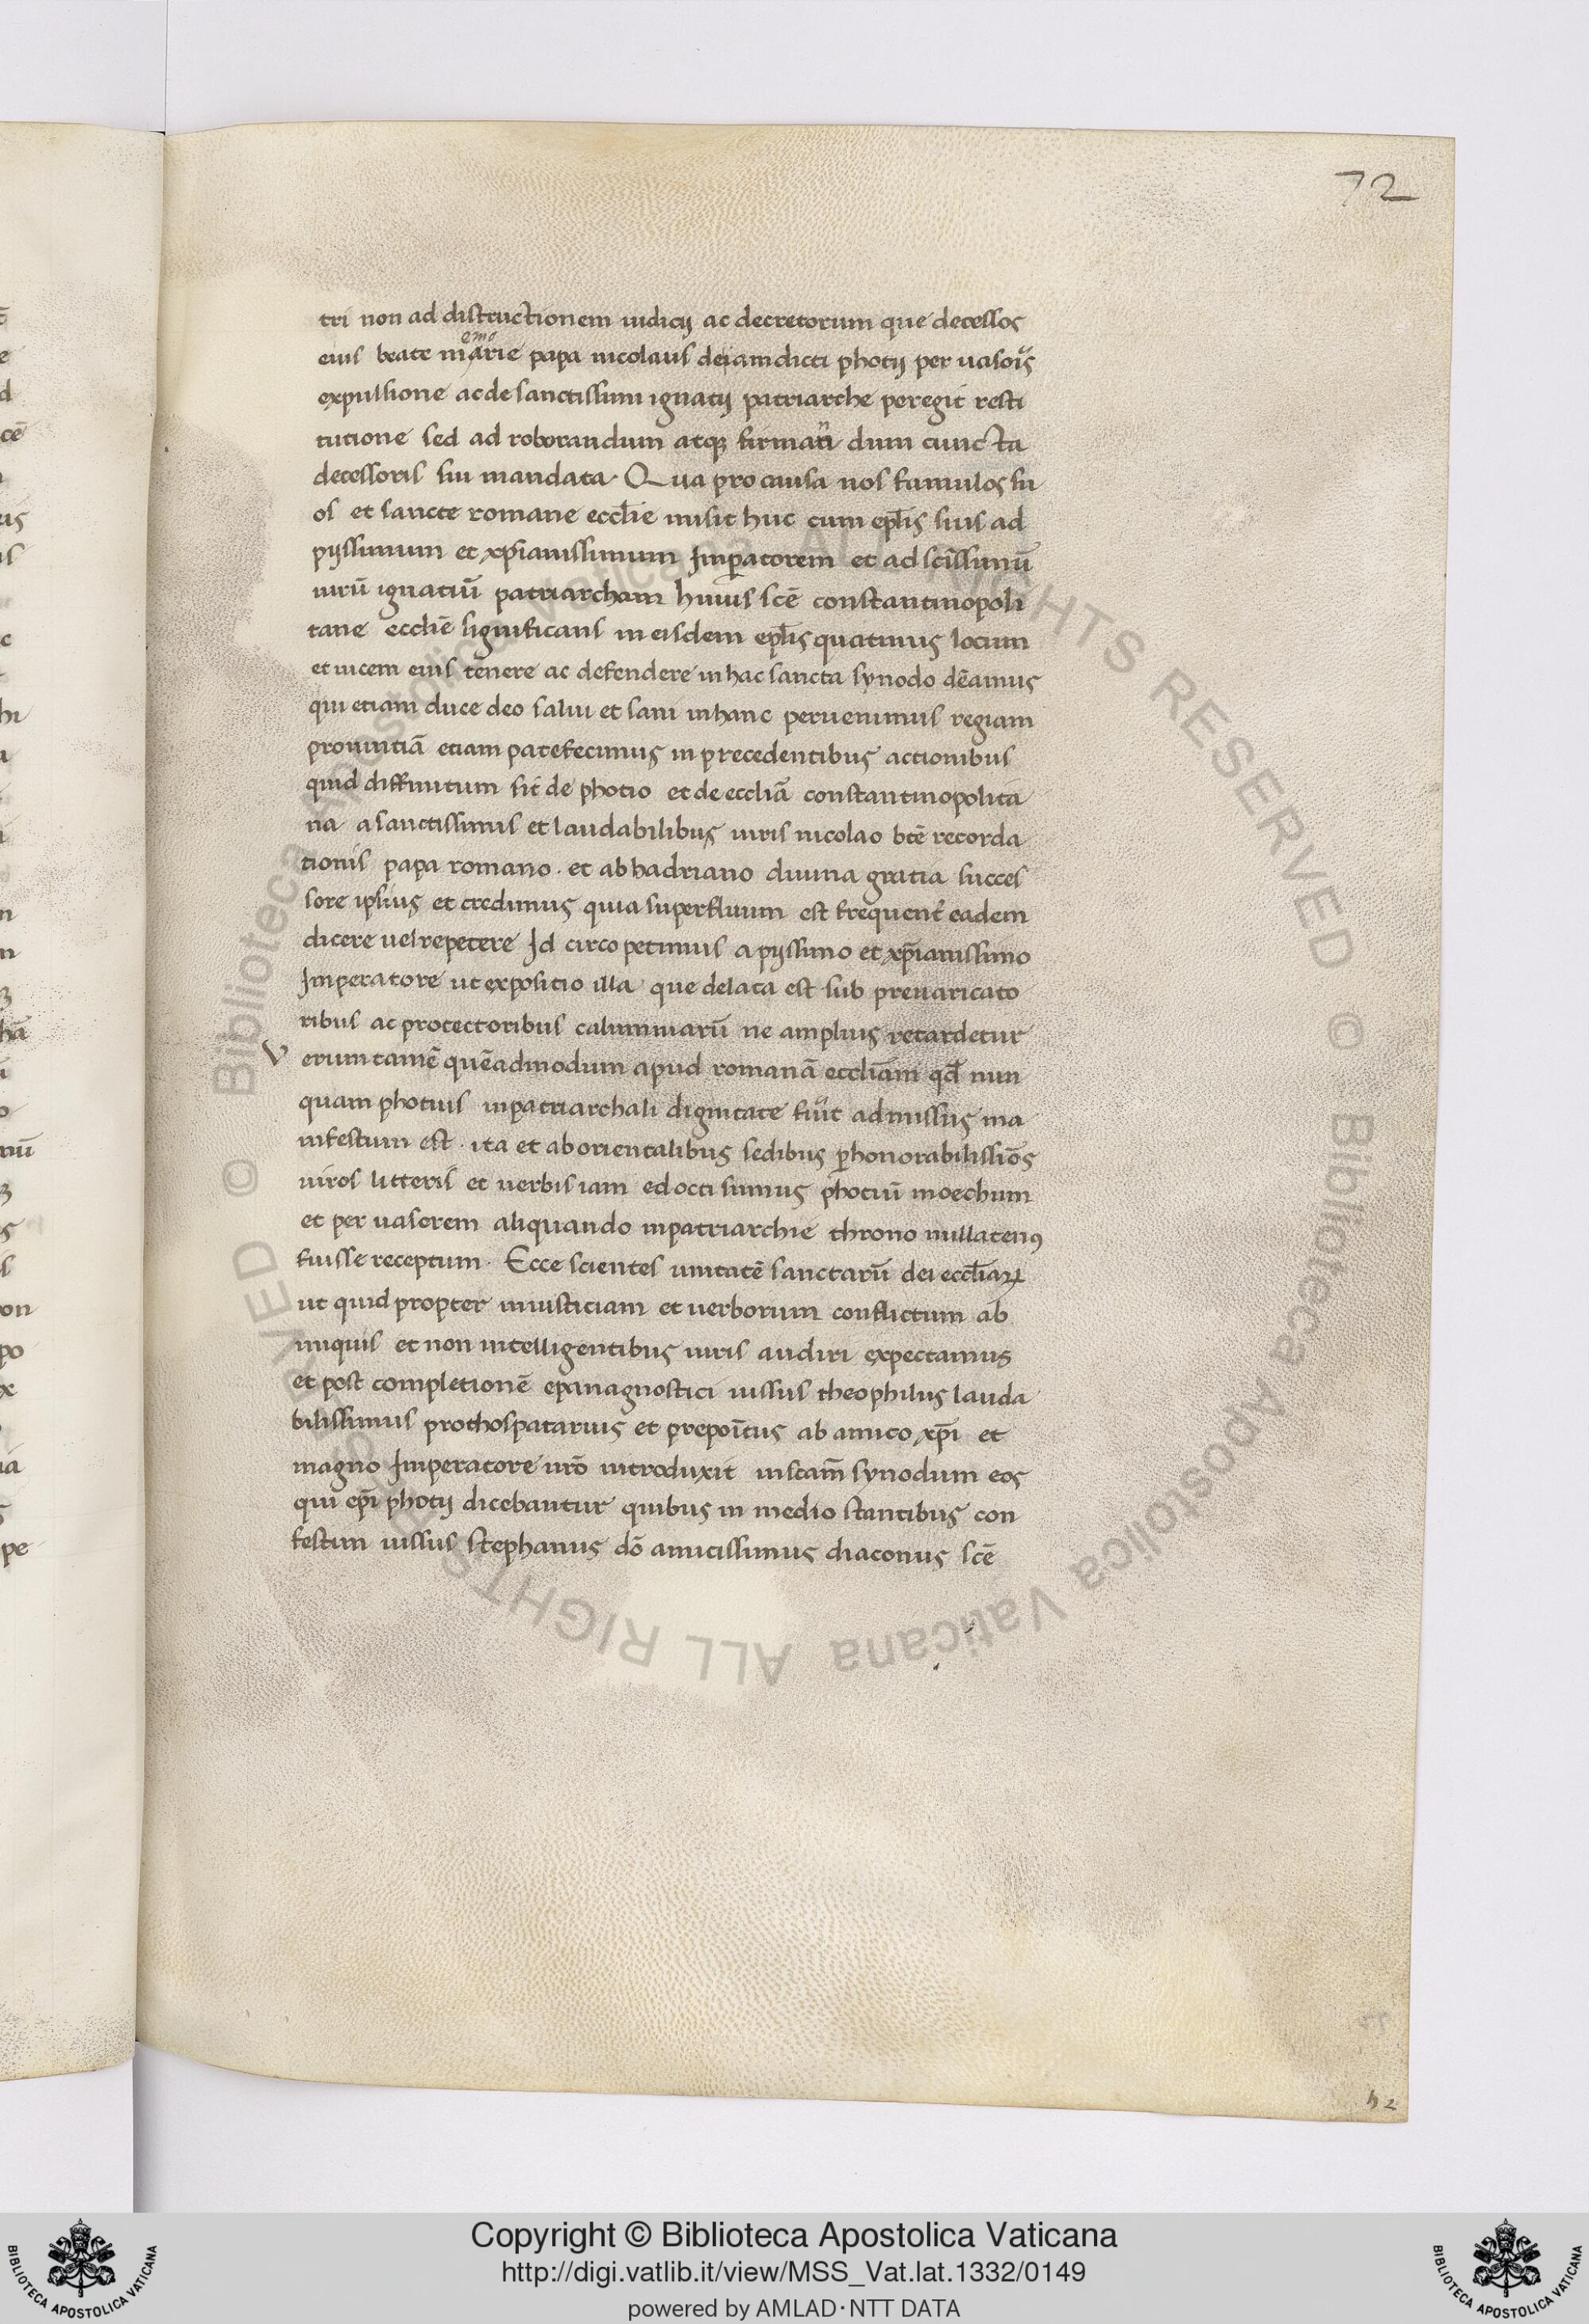 72
tri non ad distructionem iudicij ac decretorum que decessos
emo
eius beate marie papa nicolaus deiamdicti photij per uasoris
expulsione acdesanctissimi ignatij patriarche peregit resti
tutione sed ad roborandum atq; firman dum cuncta
decessoris sui mandata· Qua procausa nos famulos su
os et sancte romane eccl̄ie misit huc cum epl̄is suis ad
pijssimum et xp̄ianissimum Imp̄atorem et ad sc̄issimū
uirū ignatiū patriarcham huius scē constantinopoli
tane eccliē significans in eisdem epl̄is quatinus locum
et uicem eius tenere ac defendere inhac sancta synodo dēamus
qui etiam duce deo salui et sani inhanc peruenimus regiam
prouintiā etiam patefecimus in precedentibus actionibus
quid diffinitum sit de photio et de eccliā constantinopolita
na asanctissimis et laudabilibus uiris nicolao btē recorda
tionis papa romano · et abhadriano diuina gratia succes
sore ipsius et credimus quia superfluum est frequent̄ eadem
dicere uel repetere Id circo petimus apijssimo et xp̄ianissimo
Imperatore ut expositio illa que delata est sub preuaricato
ribus ac protectoribus calumniarū ne amplius retardetur
Verumtamē quēadmodum apud romanā eccliām qđ nun
quam photius inpatriarchali dignitate fuit admissus ma
nifestum est · ita et aborientalibus sedibus p̄honorabilissiōs
uiros litteris et uerbis iam edocti sumus photiū moechum
et per uasorem aliquando inpatriarchie throno nullaten9
fuisse receptum· Ecce scientes unitatē sanctarū dei eccl̄iaꝝ
ut quid propter iniusticiam et uerborum conflictum ab
iniquis et non intelligentibus uiris audiri expectamus
et post completionē epanagnostici iussus theophilus lauda
bilissimus prothospatarius et prepoītus ab amico xp̄i et
magno Imperatore nr̄o introduxit inscam̄ synodum eos
qui ep̄i photij dicebantur quibus in medio stantibus con
festim iussus stephanus dō amicissimus diaconus scē
h 2
Copyright © Biblioteca Apostolica Vaticana
http://digi.vatlib.it/view/MSS_Vat.lat.1332/0149
powered by AMLAD·NTT DATA
BIBLIOTECA APOSTOLICA VATICANA
BIBLIOTECA APOSTOLICA VATICANA
© Biblioteca Apostolica Vaticana ALL RIGHTS RESERVED © Biblioteca Apostolica Vaticana ALL RIGHTS RESERVED